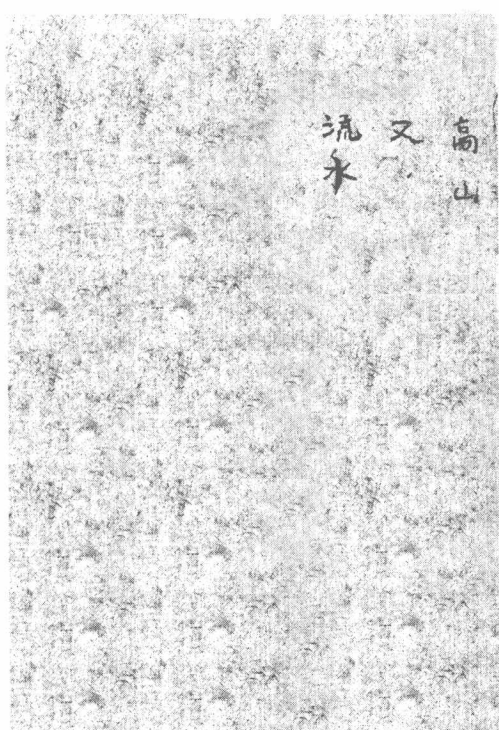 高山
又
流水